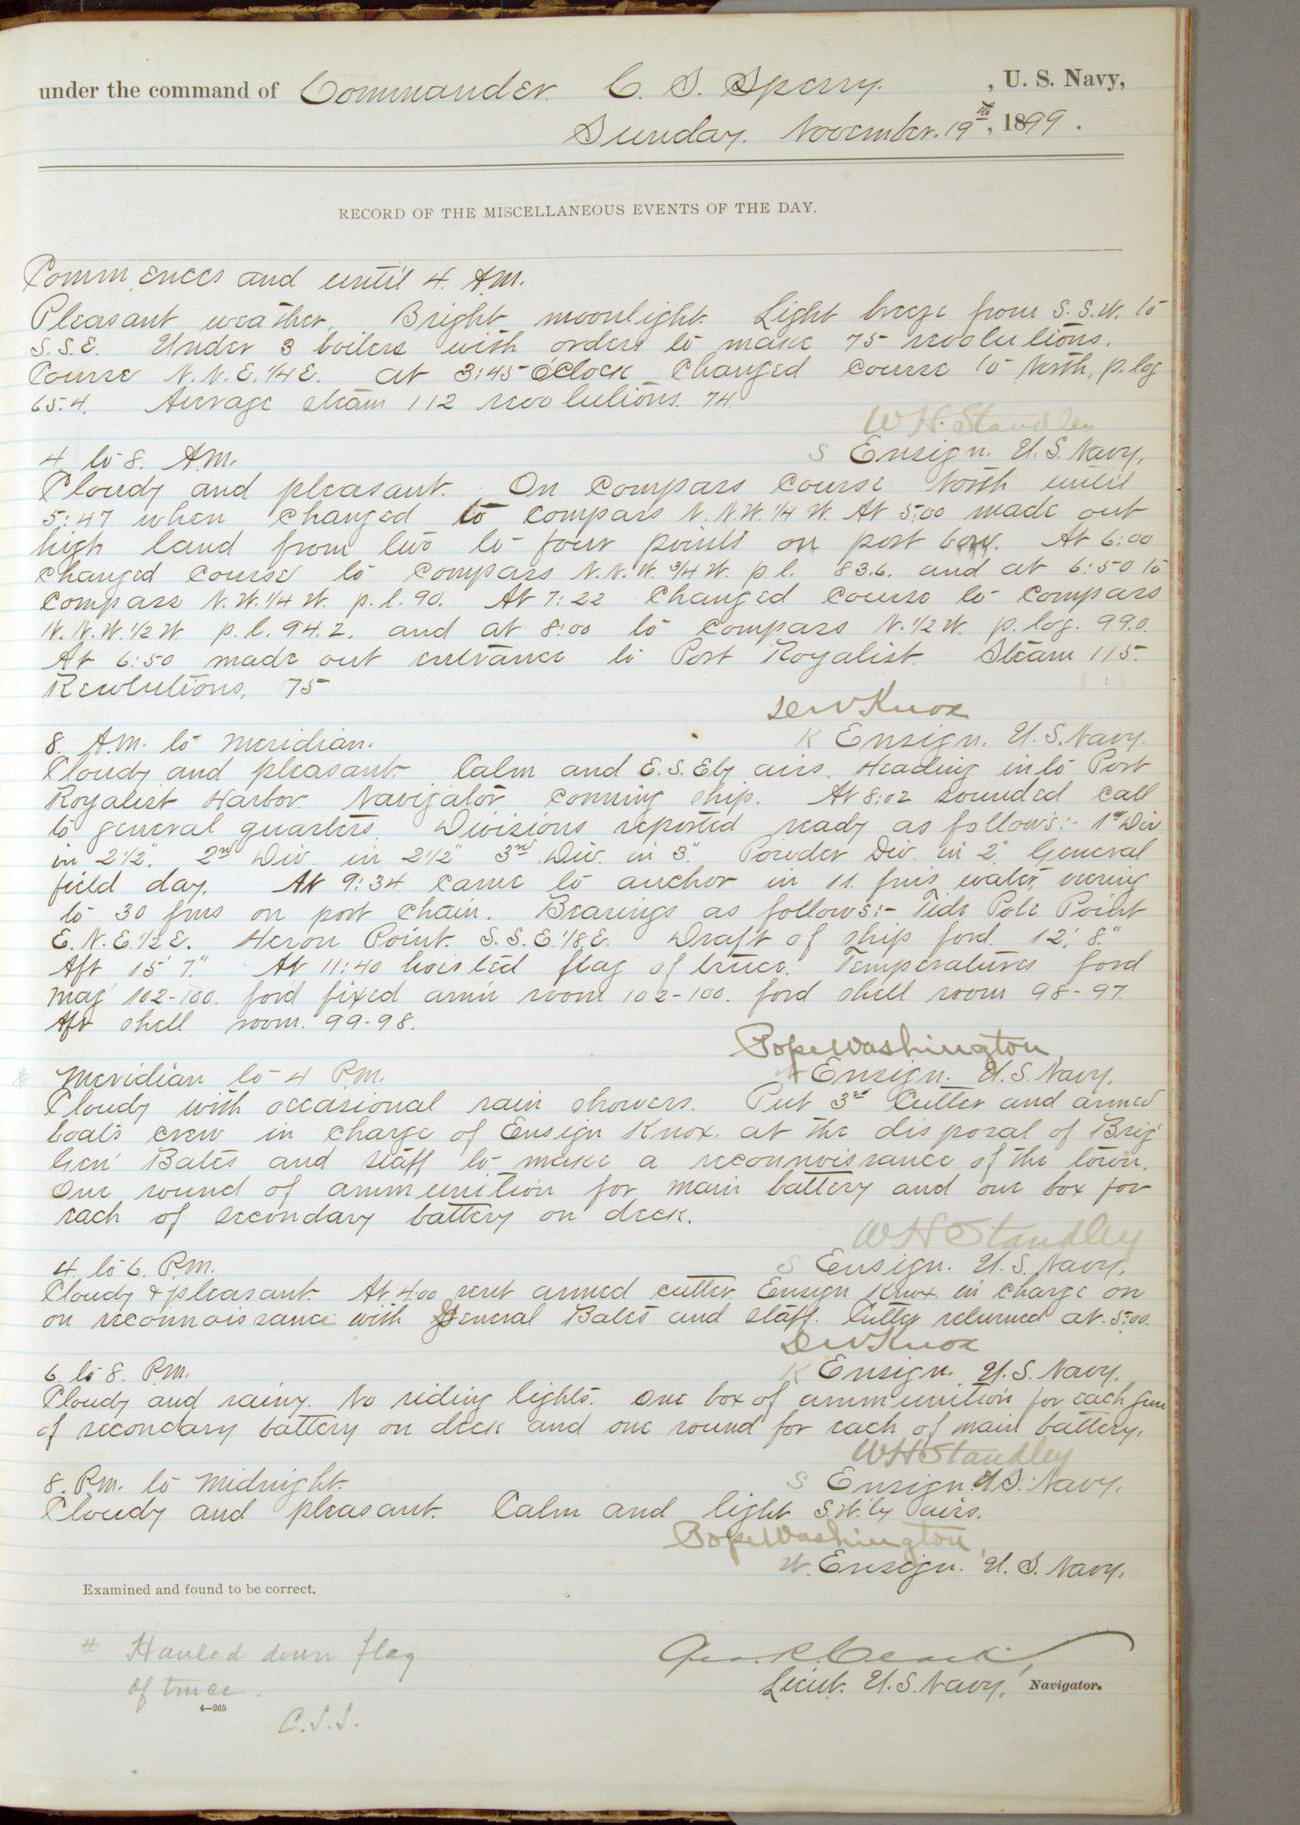 under the command of Commander C. S. Sperry. , U. S. Navy,
Sunday. November. 19th, 1899.
RECORD OF THE MISCELLANEOUS EVENTS OF THE DAY.
Commences and until 4. A.M.
Pleasant weather. Bright moonlight. Light breeze from S.S.W. to
S.S.E. Under 3 boilers with orders to make 75 revolutions.
Course N.N.E. 1/4 E. At 3:45 O'Clock changed course to North, p. log
65.4. Average steam 112 revolutions. 74.
W H Standley
4 to 8. A.M.
S Ensign. U.S. Navy.
Cloudy and pleasant. On compass course North until
5:47 when changed to compass N.N.W. 1/4 W. At 5:00 made out
high land from two to four points on port bow. At 6:00
changed course to compass N.N.W. 3/4 W. p.l. 83.6. and at 6:50 to
compass N.W. 1/4 W. p.l. 90. At 7:22 changed course to compass
N.N.W. 1/2 W p.l. 94.2. and at 8:00 to compass N. 1/2 W. p. log. 99.0.
At 6:50 made out entrance to Port Royalist. Steam 115.
Revolutions, 75
D W Knox
8. A.M. to Meridian.
K Ensign. U.S. Navy.
Cloudy and pleasant. Calm and E.S.Ely airs. Heading into Port
Royalist Harbor. Navigator conning ship. At 8:02 sounded call
to general quarters. Divisions reported ready as follows:- 1st Div
in 2 1/2". 2nd Div. in 2 1/2" 3rd Div. in 3". Powder Div. in 2". General
field day. At 9:34 came to anchor in 11. fms water, veering
to 30 fms on port chain. Bearings as follows:- Tide Pole Point
E.N.E. 1/2 E. Heron Point. S.S.E. 1/8 E. Draft of ship ford. 12' 8."
Aft 15' 7." At 11:40 hoisted flag of truce. Temperatures ford
mag' 102-100. ford fixed amn room 102-100. ford shell room 98-97.
Aft shell room. 99-98.
Pope Washington,
* Meridian to 4 P.M.
W Ensign. U.S. Navy.
Cloudy with occasional rain showers. Put 3rd Cutter and armed
boats crew in charge of Ensign Knox. at the disposal of Brig'
Gen' Bates and staff to make a reconnoissance of the town.
One round of ammunition for main battery and one box for
each of secondary battery on deck.
W H Standley
4 to 6. P.M.
S Ensign. U.S. Navy.
Cloudy & pleasant. At 4.00 sent armed cutter Ensign Knox in charge on
on reconnoissance with General Bates and staff. Cutter returned at 5:00.
D W Knox
6 to 8. P.M.
K Ensign. U.S. Navy.
Cloudy and rainy. No riding lights. One box of ammunition for each gun
of secondary battery on deck and one round for each of main battery.
W H Standley
8. P.M. to Midnight.
S Ensign. U.S. Navy.
Cloudy and pleasant. Calm and light S.W.'ly airs.
Pope Washington,
W. Ensign. U.S. Navy.
Examined and found to be correct.
Hauled down flag
of truce.
4—265
C.S.S.
Geo. R. Clark,
Lieut. U.S. Navy, Navigator.